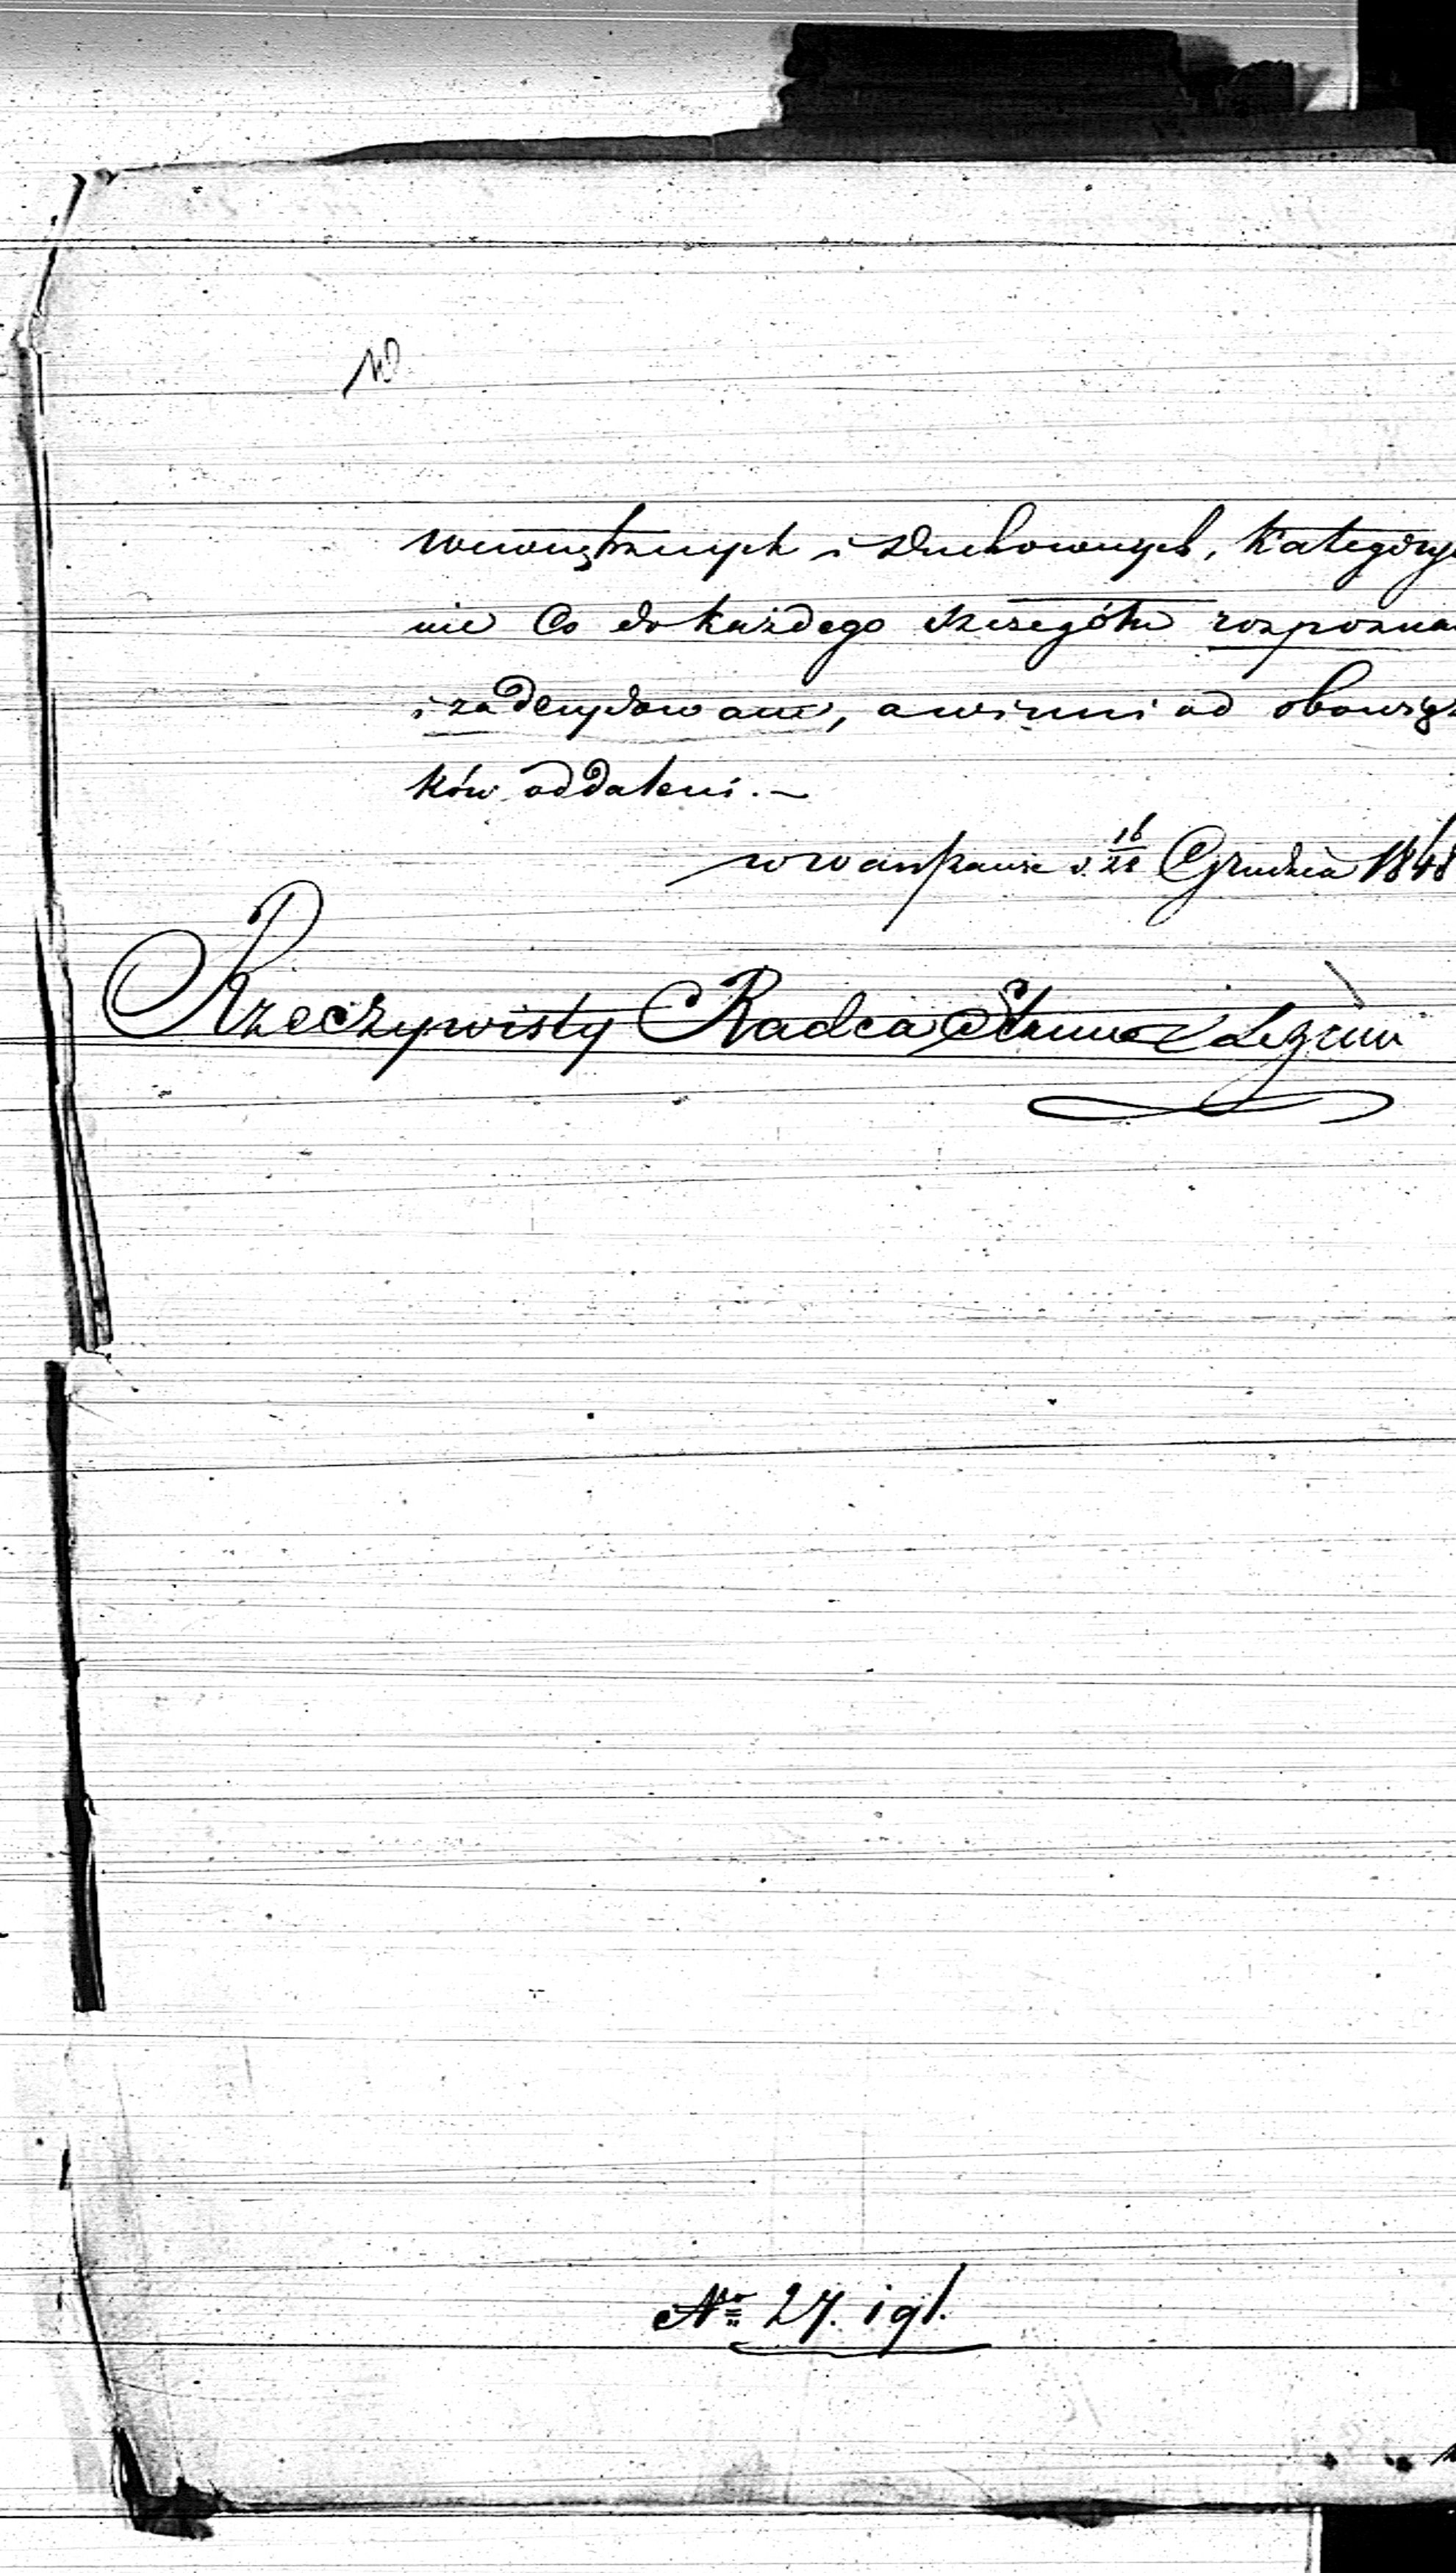 wewnętrznych i Duchownych, Kategory
nie Co do każdego szczegółu rozpozna
i zadecydowane, a winni od obowiąz
ków oddaleni. –
w Warszawie d. 16/28 Grudnia 1848
Rzeczywisty Radca Stanu
No 27. igl.